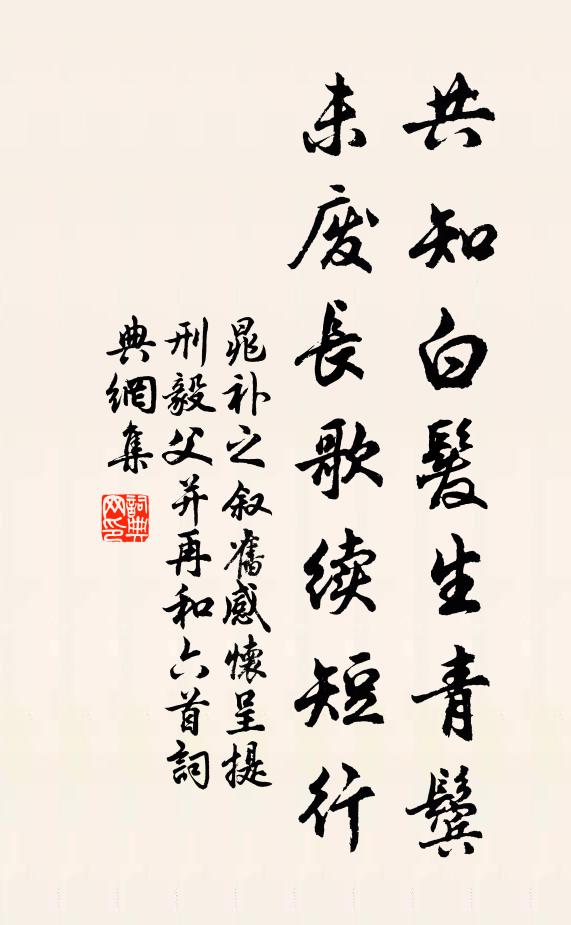 共知白髮生青鬢
未废長歌续短行
晁补之叙舊感懷呈提
刑毅父并再和六首詞
典網集
詞典
网印